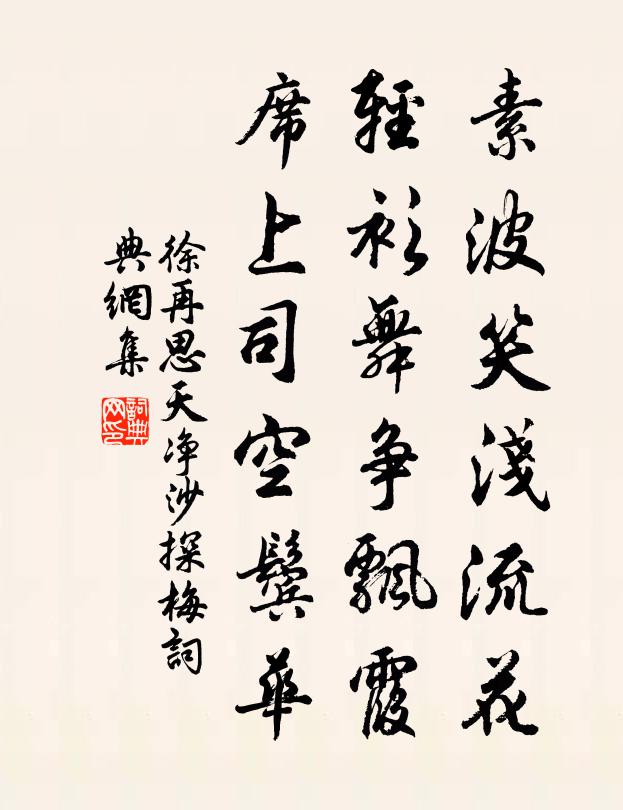 素波笑淺流花
輕衫舞爭飄霞
席上司空鬢華
徐再思天净沙探梅詞
典網集
詞典網印